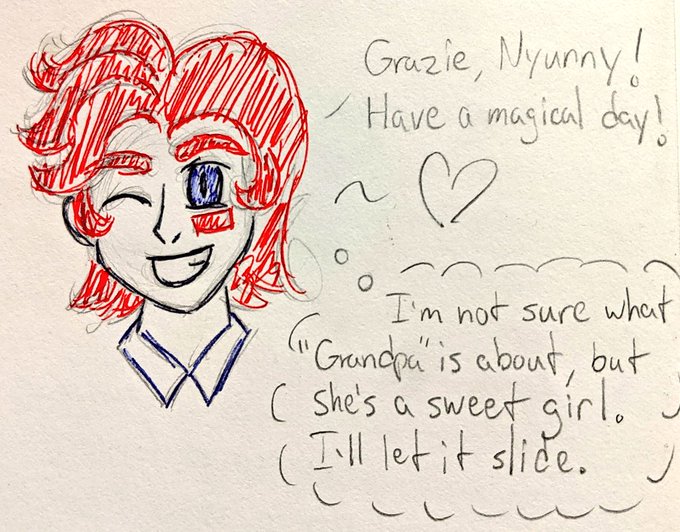 Grazie, Nyunny!
Have a magical day!
I'm not sure what
"Grandpa" is about, but
she's a sweet girl.
I'll let it slide.